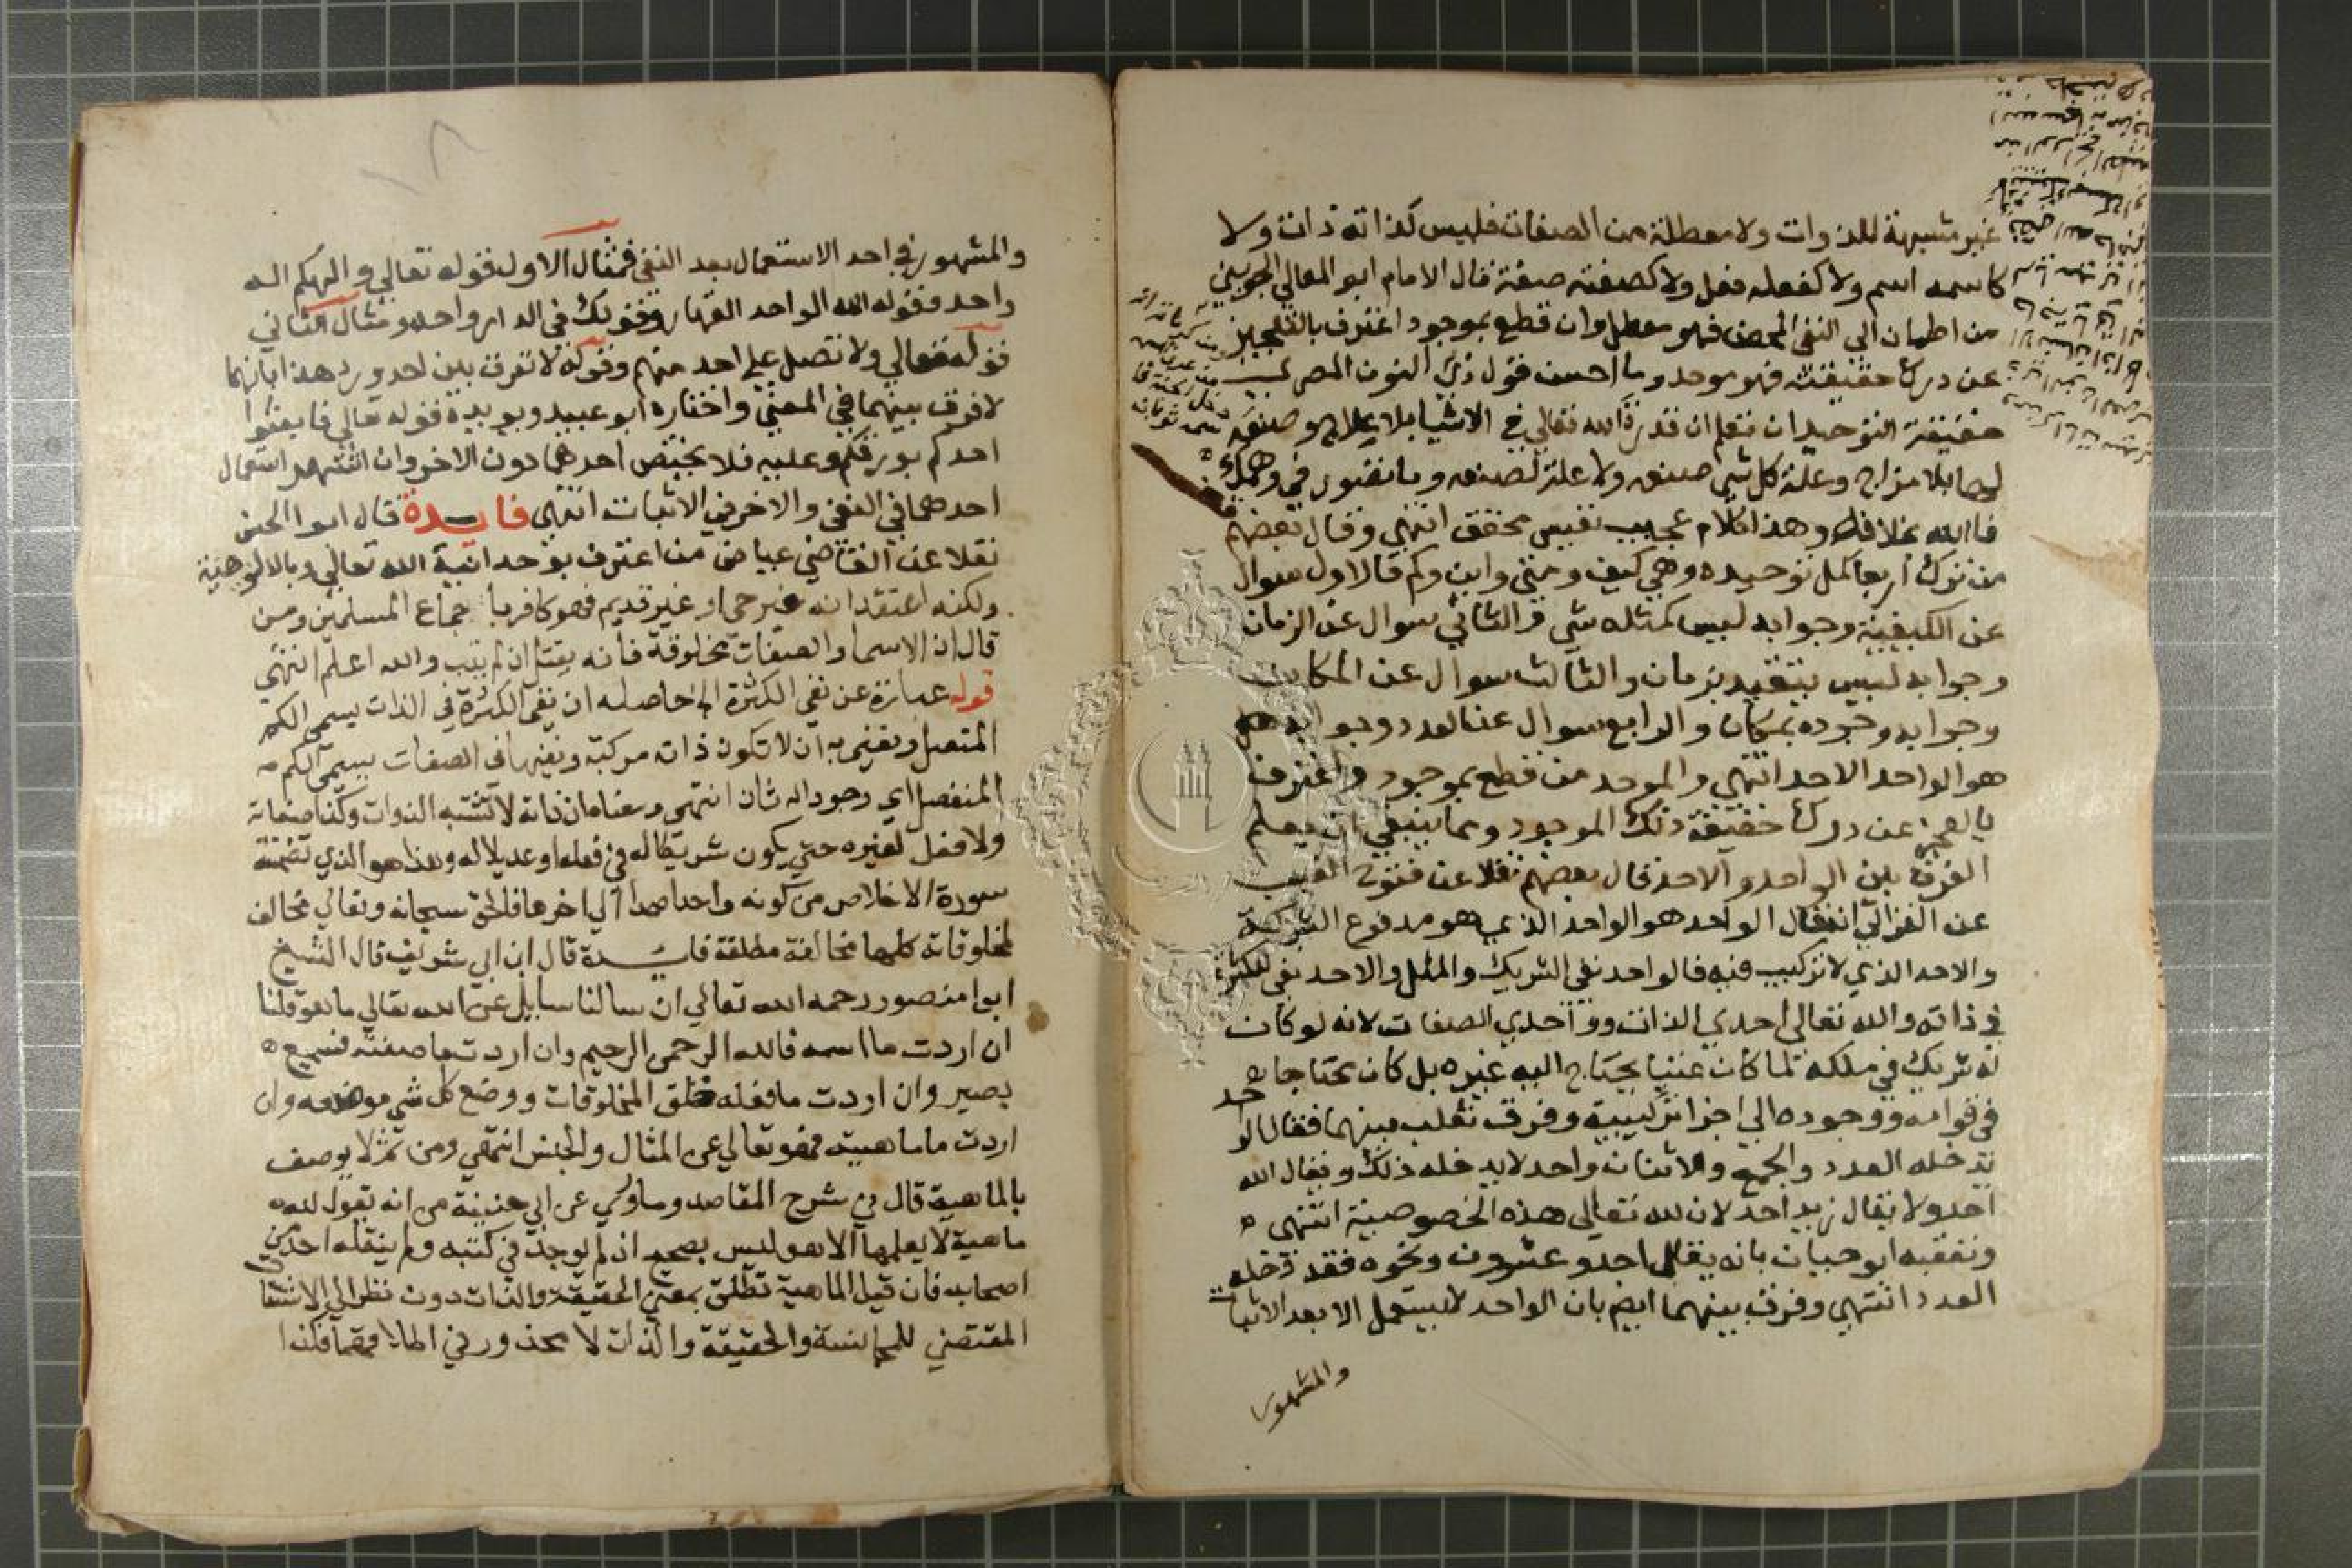 غير مشبهة للذوات ولا معطلة من الصفات فليس كذاته ذات ولا
كاسمه اسم ولا كفعله فعل ولا كصفته صفة قال الامام ابو المعالي الجويني
من اطمان الى النفي المحض فهو معطل وان قطع بموجود اعترف بالعجز
عن درك حقيقته فهو موحد وما احسن قول ذي النون المصري
حقيقة التوحيد ان تعلم ان قدرة الله تعالي في الاشيا بلا علاج وصنعه
لها بلا مزاج وعلة كل شي صنعه ولا علة لصنعه وما تصور في وهمك
فالله بخلافه وهذا كلام عجيب نفيس محقق انتهي وقال بعضهم
من ترك اربعا كمل توحيده وهي كيف ومتي واين وكم فالاول سوال
عن الكيفية وجوابه ليس كمثله شي والثاني سوال عن الزمان
وجوابه ليس يتقيد بزمان والثالث سوال عن المكان
وجوابه وجوده بمكان والرابع سوال عن العدد وجوابه هل
هو الواحد الاحد انتهي والموحد من قطع بموجود واعترف
بالعجز عن درك حقيقة ذلك الموجود ومما ينبغي ان يعلم
الفرق بين الواحد والاحد قال بعضهم نقلا عن فتوح الغيب
عن الغزالي انه قال الواحد هو الواحد الذي هو مدفوع الشركة
والاحد الذي لا تركيب فيه فالواحد نفي الشريك والمثل والاحد نفي الكثرة
في ذاته والله تعالى احدي الذات و احدي الصفات لانه لو كان
له شريك في ملكه لما كان غنيا يحتاج اليه غيره بل كان محتاجا
في قوامه ووجوده الي اجزا تركيبية وفرق ثعلب بينهما فقال الواحد
يدخله العدد والجمع والاثنان واحد لا يدخله ذلك ويقال الله
احد ولا يقال زيد احد لان لله تعالي هذه الخصوصية انتهى
وتعقبه ابو حيان بانه يقال احد وعشرون ونحوه فقد دخله
العدد انتهي وفرق بينهما ايضا بان الواحد لا يستعمل الا بعد الاثبات
والمشهور
والمشهور في احد الاستعمال بعد النفي فمثال الاول قوله تعالي والهكم اله
واحد وقوله الله الواحد القهار وقولك في الدار واحد ومثال الثاني
قوله تعالي ولا تصل علي احد منهم وقوله لا نفرق بين احد ورد هذا بانهما
لا فرق بينهما في المعني واختاره ابو عبيد ويويده قوله تعالي فابعثوا
احدكم بورقكم وعليه فلا يختص احدهما دون الاخر وان اشتهر استعمال
احدهما في النفي والاخر في الاثبات انتهي فايدة قال ابو الحسن
نقلا عن القاضي عياض من اعترف بوحدانية الله تعالي وبالالوهية
ولكنه اعتقد انه غير حي او غير قديم فهو كافر باجماع المسلمين ومن
قال ان الاسما والصفات مخلوقة فانه يقتل ان لم يتب والله اعلم انتهي
قوله عبارة عن نفي الكثرة الخ حاصله ان نفي الكثرة في الذات يسمى الكم
المتصل ويعني به ان لا تكون ذاته مركبة ونفيها في الصفات يسمي الكم
المنفصل اي وجود اله ثان انتهى ومعناه ان ذاته لا تشبه الذوات وكذا صفاته
ولا فعل لغيره حتي يكون شريكا له في فعله او عديلا له وهذا هو الذي تضمنته
سورة الاخلاص من كونه واحدا صمدا الي اخرها فالحق سبحانه وتعالي مخالف
لمخلوقاته كلها مخالفة مطلقة فايدة قال ابن ابي شريف قال الشيخ
ابوا منصور رحمه الله تعالي ان سالنا سايل عن الله تعالي ما هو قلنا
ان اردت ما اسمه فالله الرحمن الرحيم وان اردت ما صفته فسميع
بصير وان اردت ما فعله فخلق المخلوقات ووضع كل شي موضعه وان
اردت ما ماهيته فهو تعالي عن المثال والجنس انتهي ومن ثم لا يوصف
بالماهية قال في شرح المقاصد وما روي عن ابي حنيفة من انه يقول لله
ماهية لا يعلمها الا هو ليس بصحيح اذ لم يوجد في كتبه ولم ينقله احد من
اصحابه فان قيل الماهية تطلق بمعني الحقيقة والذات دون نظر الي الاشتقا
المقتضي للمجانسة والحقيقة والذات لا محذور في اطلاقهما فلذا